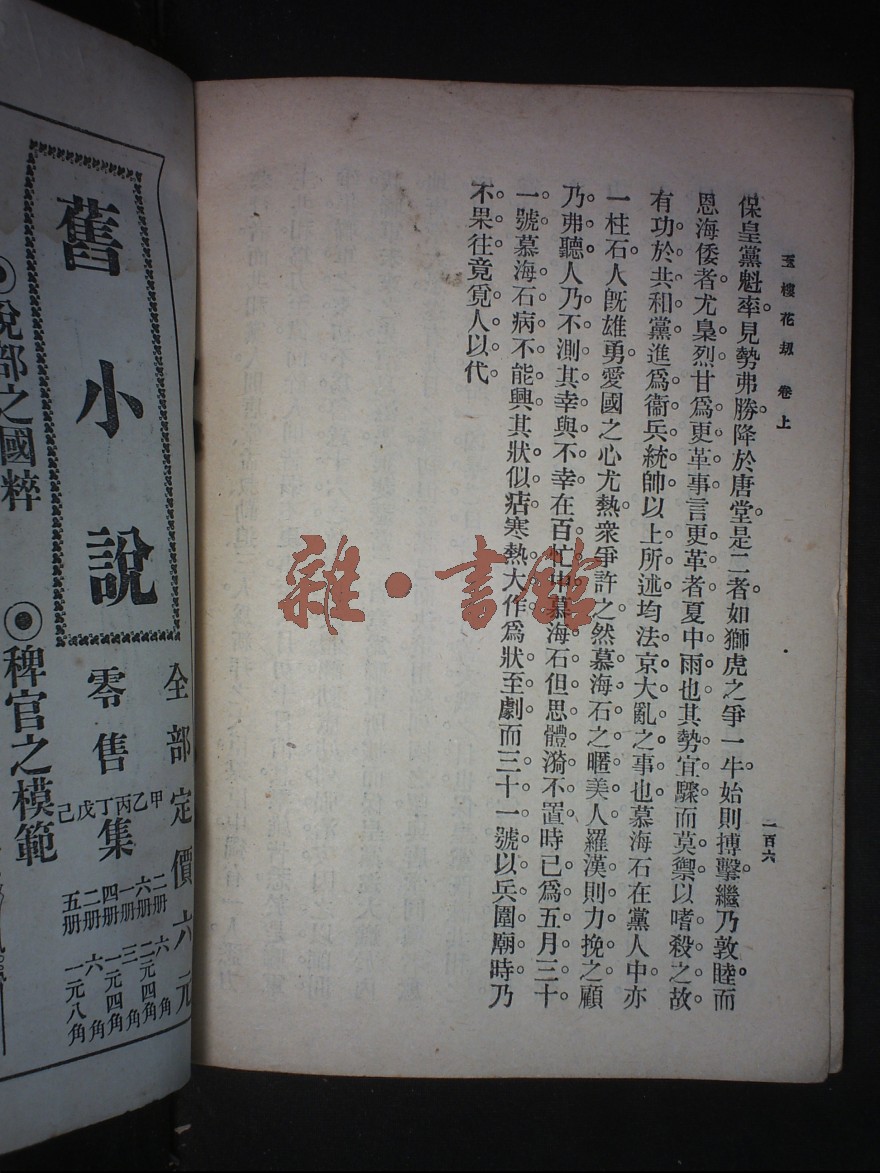 玉樓花刼 卷上
一百六
保皇黨魁率見勢弗勝。降於唐堂。是二者如獅虎之爭一牛。始則搏擊。繼乃敦睦。而
恩海倭者尤梟烈。甘爲更革事。言更革者夏中雨也。其勢宜驟而莫禦。以嗜殺之故。
有功於共和黨。進爲衞兵統帥。以上所述。均法京大亂之事也。慕海石在黨人中。亦
一柱石人。旣雄勇。愛國之心尤熱。衆爭許之。然慕海石之暱美人。羅漢則力挽之。顧
乃弗聽。人乃不測其幸與不幸。在百忙中。慕海石但思體漪不置。時已爲五月三十
一號。慕海石病不能興。其狀似痁。寒熱大作。爲狀至劇。而三十一號以兵圍廟時。乃
不果往。竟覓人以代。
雜·書館
舊小說
全部定價六元
零售
甲集 二册 六角
乙集 六册 二元四角
丙集 一册 三角
丁集 四册 一元四角
戊集 二册 六角
己集 五册 一元八角
◎說部之國粹
◎稗官之模範